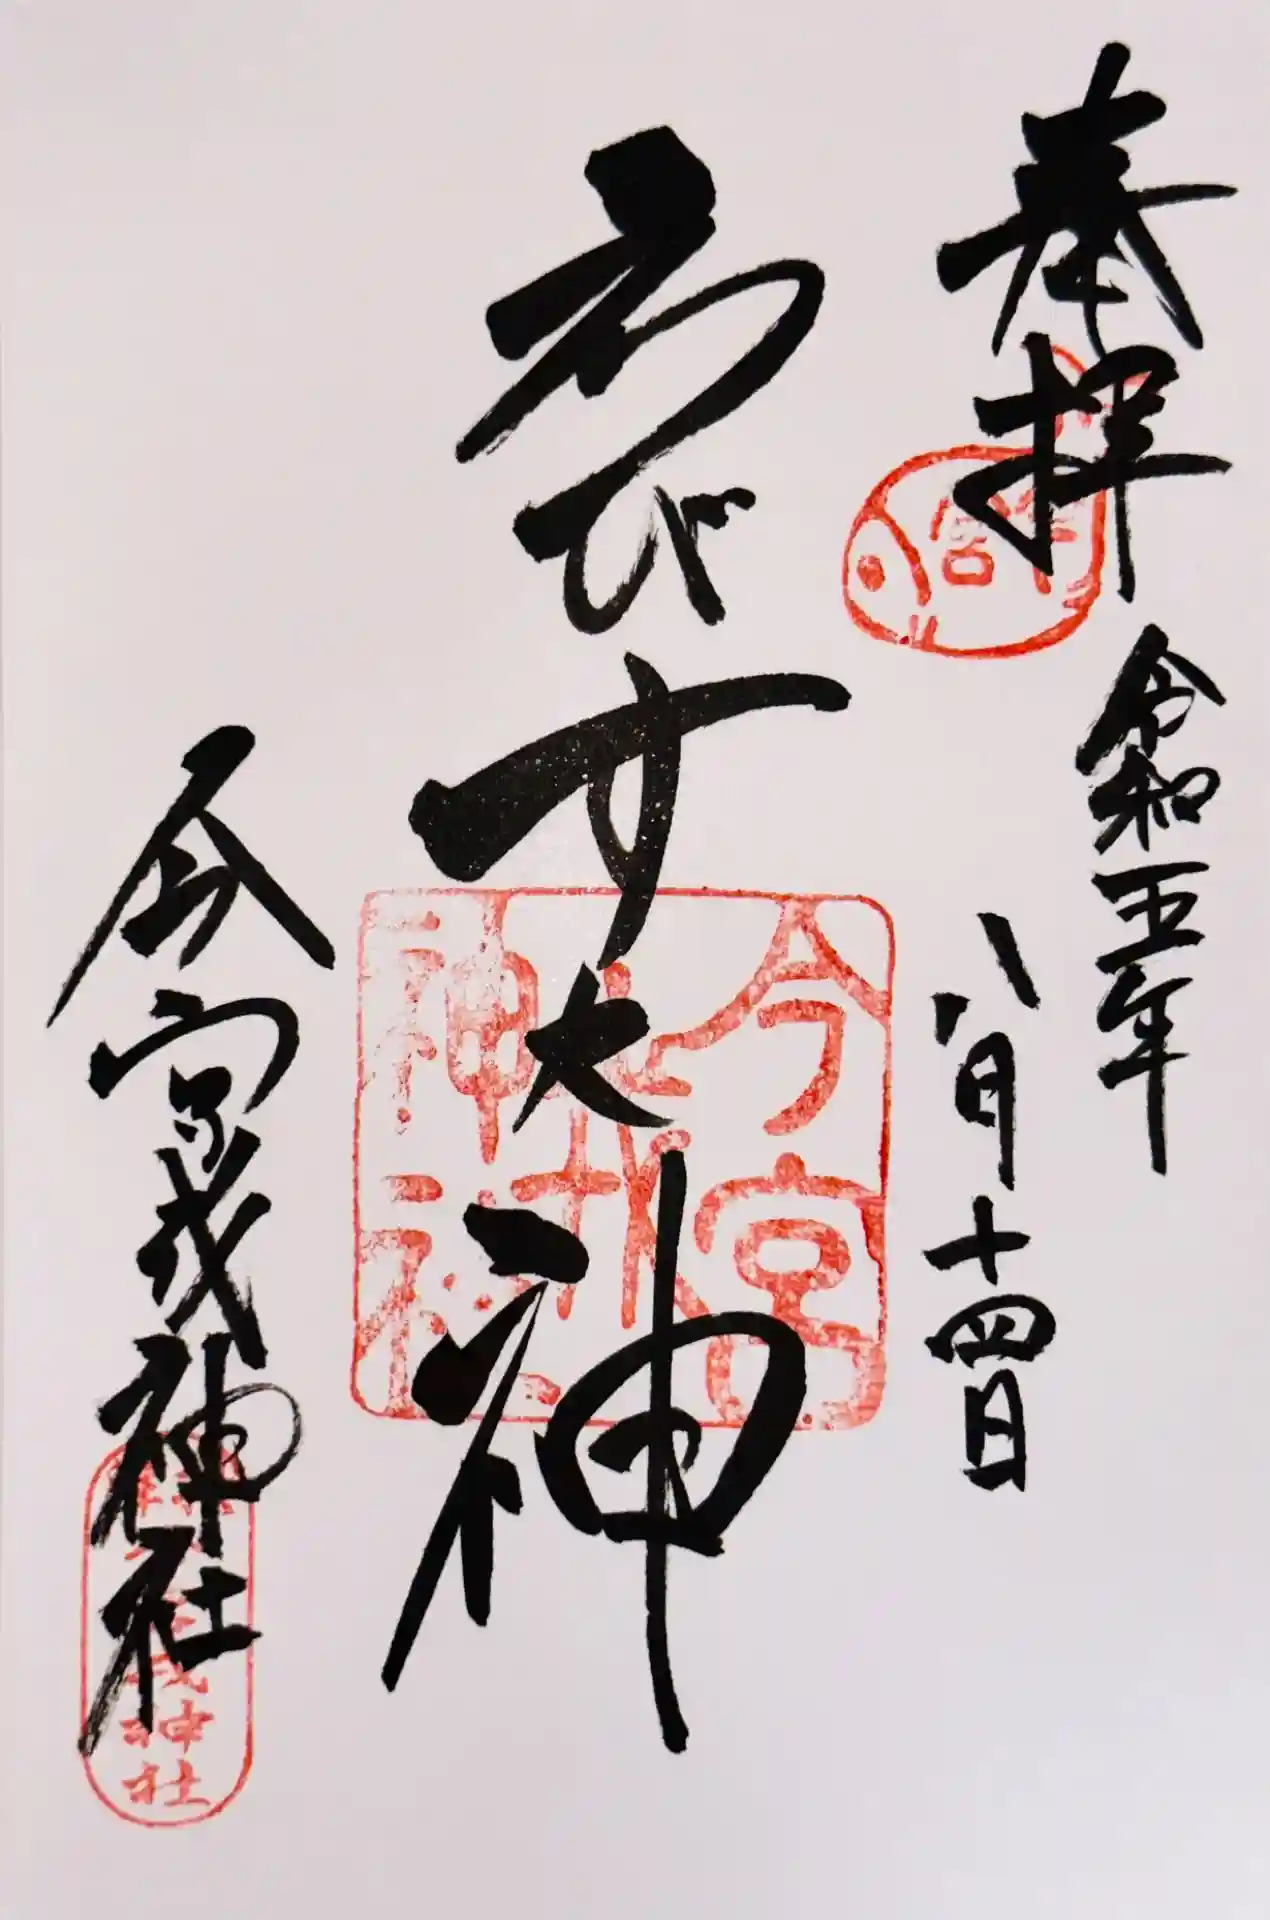 奉拝
令和五年
八月十四日
ゑびす大神
今宮戎神社
今宮戎神社
戎神社